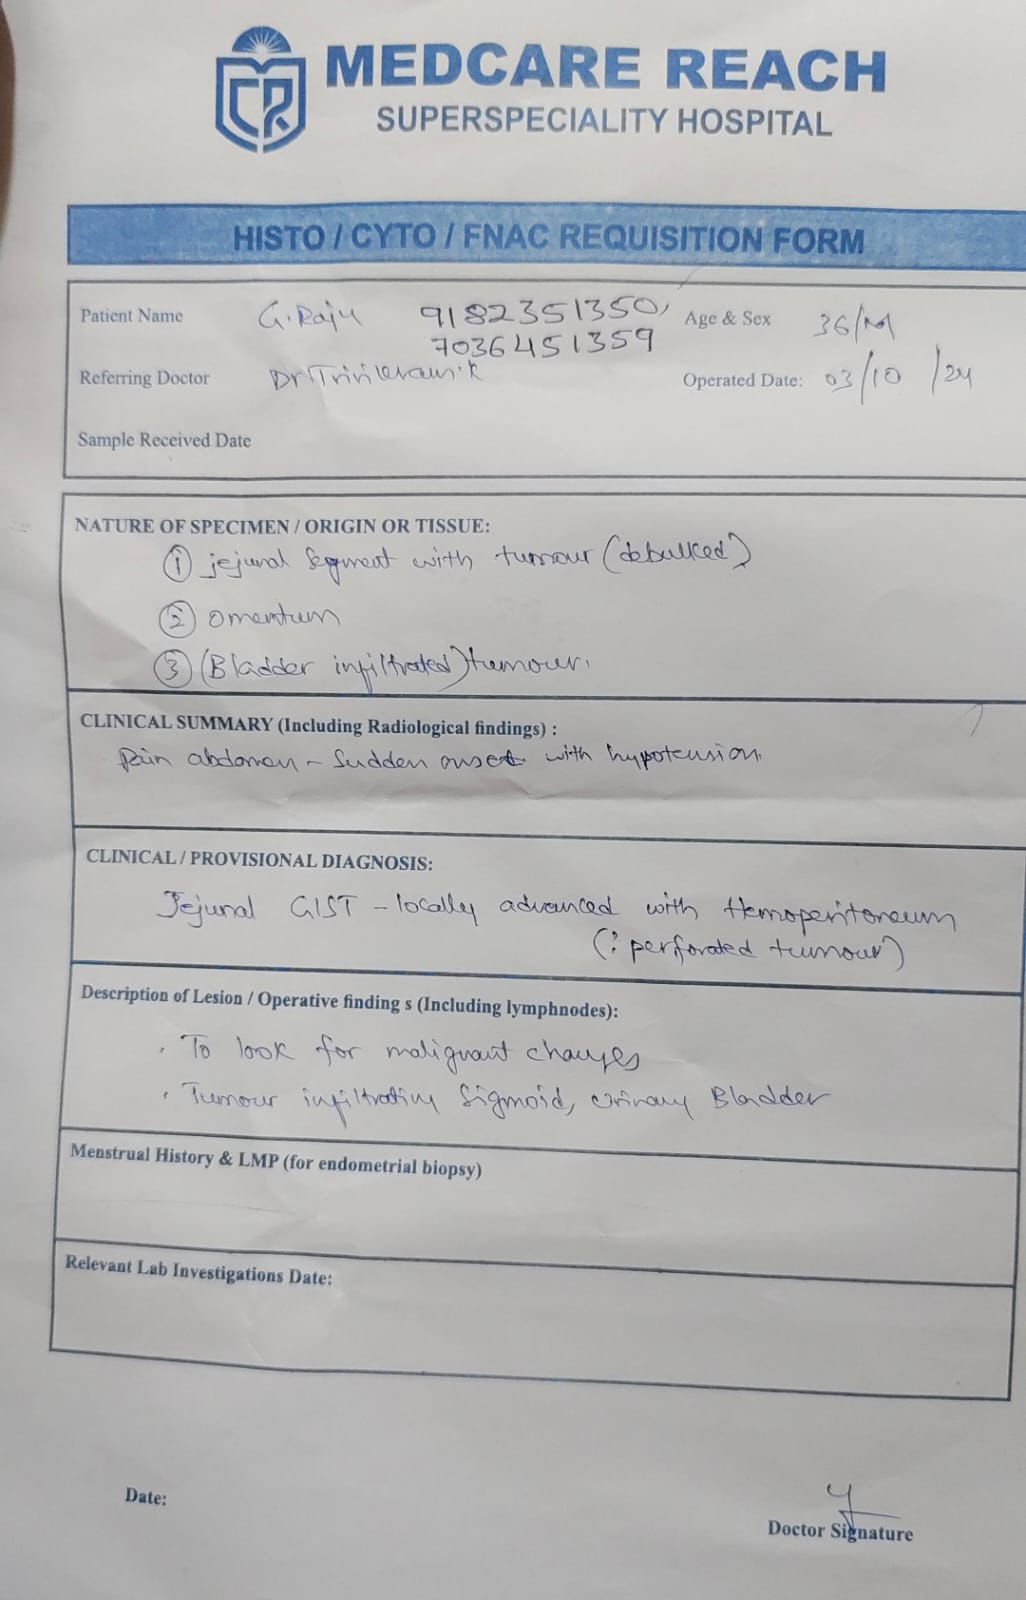 MEDCARE REACH
SUPERSPECIALITY HOSPITAL
HISTO / CYTO / FNAC REQUISITION FORM
Patient Name G. Raju 9182351350, Age & Sex 36/M
7036451359
Referring Doctor Dr Trivikram.K Operated Date: 03/10/24
Sample Received Date
NATURE OF SPECIMEN / ORIGIN OR TISSUE:
① jejunal segment with tumour (debulked)
② omentum
③ (Bladder infiltrated) tumour.
CLINICAL SUMMARY (Including Radiological findings) :
Pain abdomen - Sudden onset with hypotension.
CLINICAL / PROVISIONAL DIAGNOSIS:
Jejunal GIST - locally advanced with Hemoperitoneum
(? perforated tumour)
Description of Lesion / Operative finding s (Including lymphnodes):
· To look for malignant changes
· Tumour infiltrating Sigmoid, Urinary Bladder
Menstrual History & LMP (for endometrial biopsy)
Relevant Lab Investigations Date:
Date:
Doctor Signature